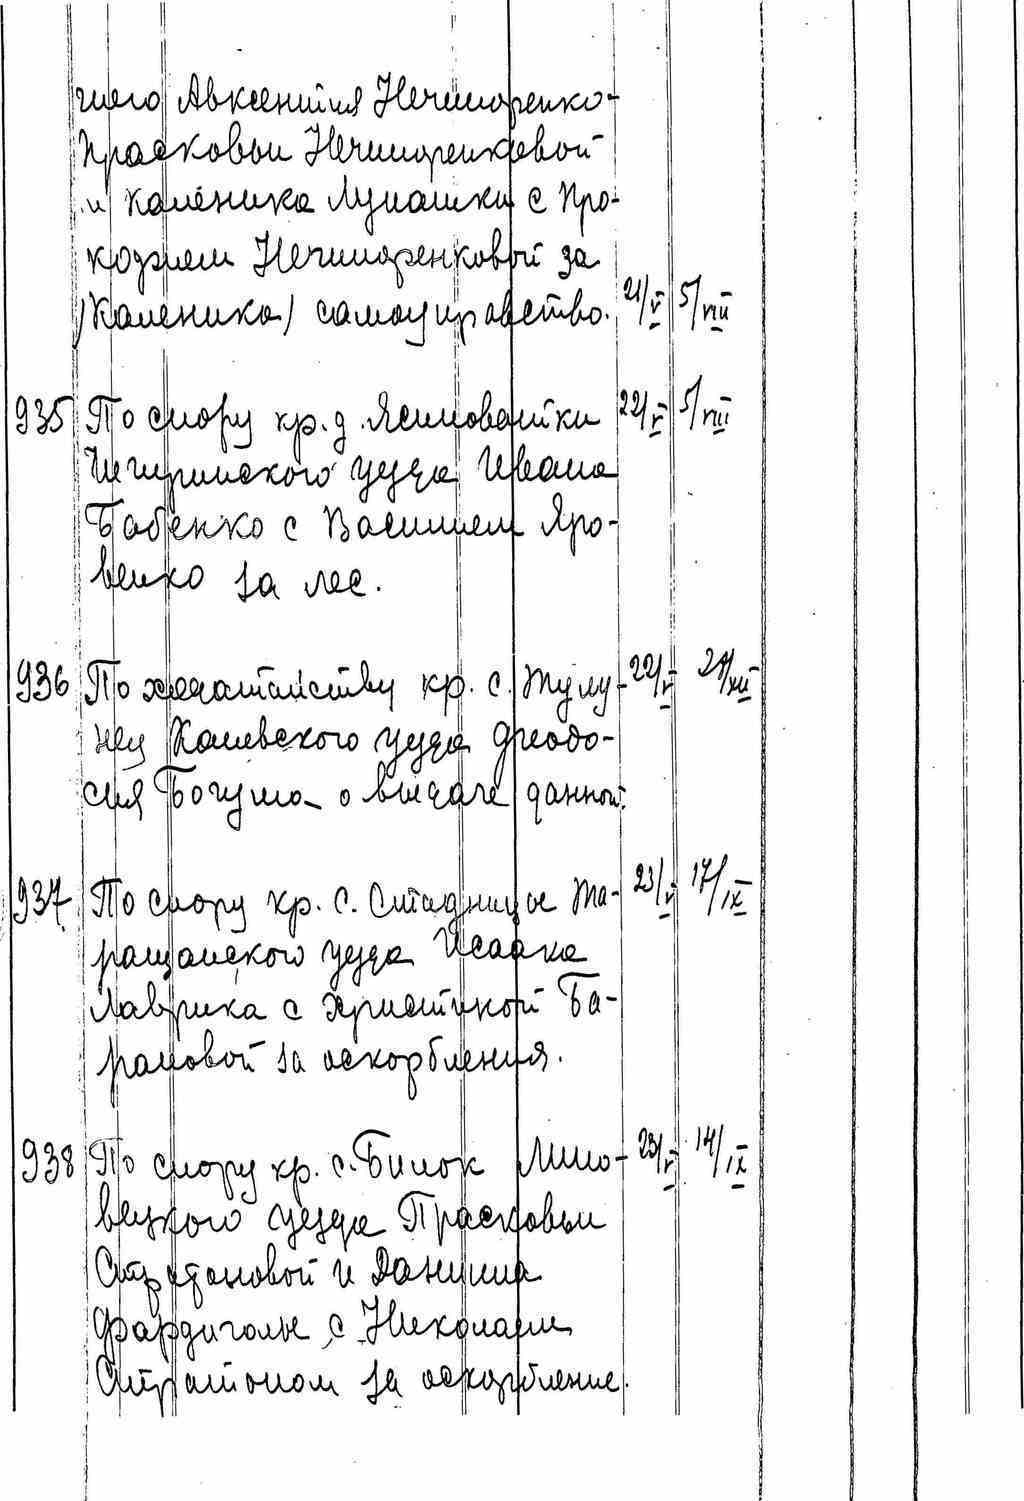 Авксентия Нечипоренко-
Прасковьи Нечипоренковой
и Каленика Лупашки с Про-
кофием Нечипоренковой за
(Каленика) самоуправство. 21/V 5/VIII
935 По спору кр. д. Ясиноватки 22/V 5/VIII
Чигиринского уезда Ивана
Бабенко с Василием Яро-
венко за лес.
936 По ходатайству кр. с. Тулу- 22/V /XII
нец Каневского уезда Феодо-
сия Богуша о выдаче данной.
937 По спору кр. с. Стадницы Та- 23/V 17/IX
ращанского уезда Исаака
Лаврика с Христиной Ба-
рановой за оскорбления.
938 По спору кр. с. Билок Липо- 23/V 14/IX
вецкого уезда Прасковьи
Стратоновой и Даниила
Фардиголы с Николаем
Стратоном за оскорбление.